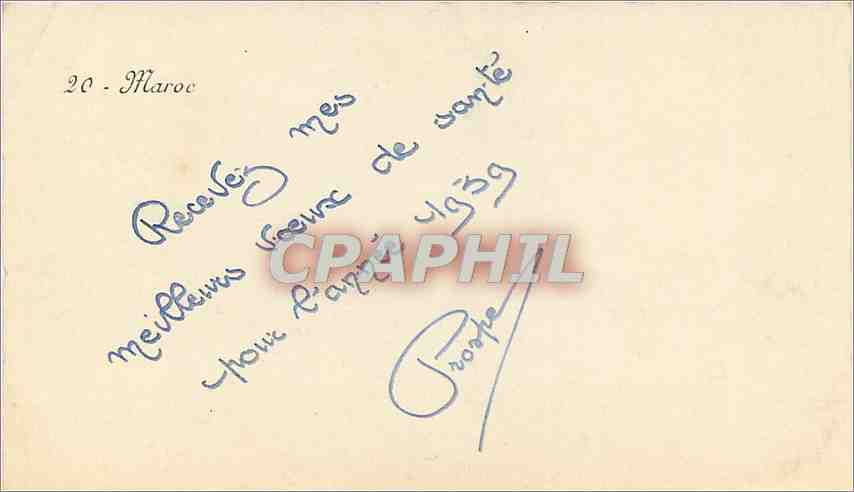 20 - Maroc
Recevez mes
meilleurs voeux de santé
pour l'année 1959
CPAPHIL
Prosper